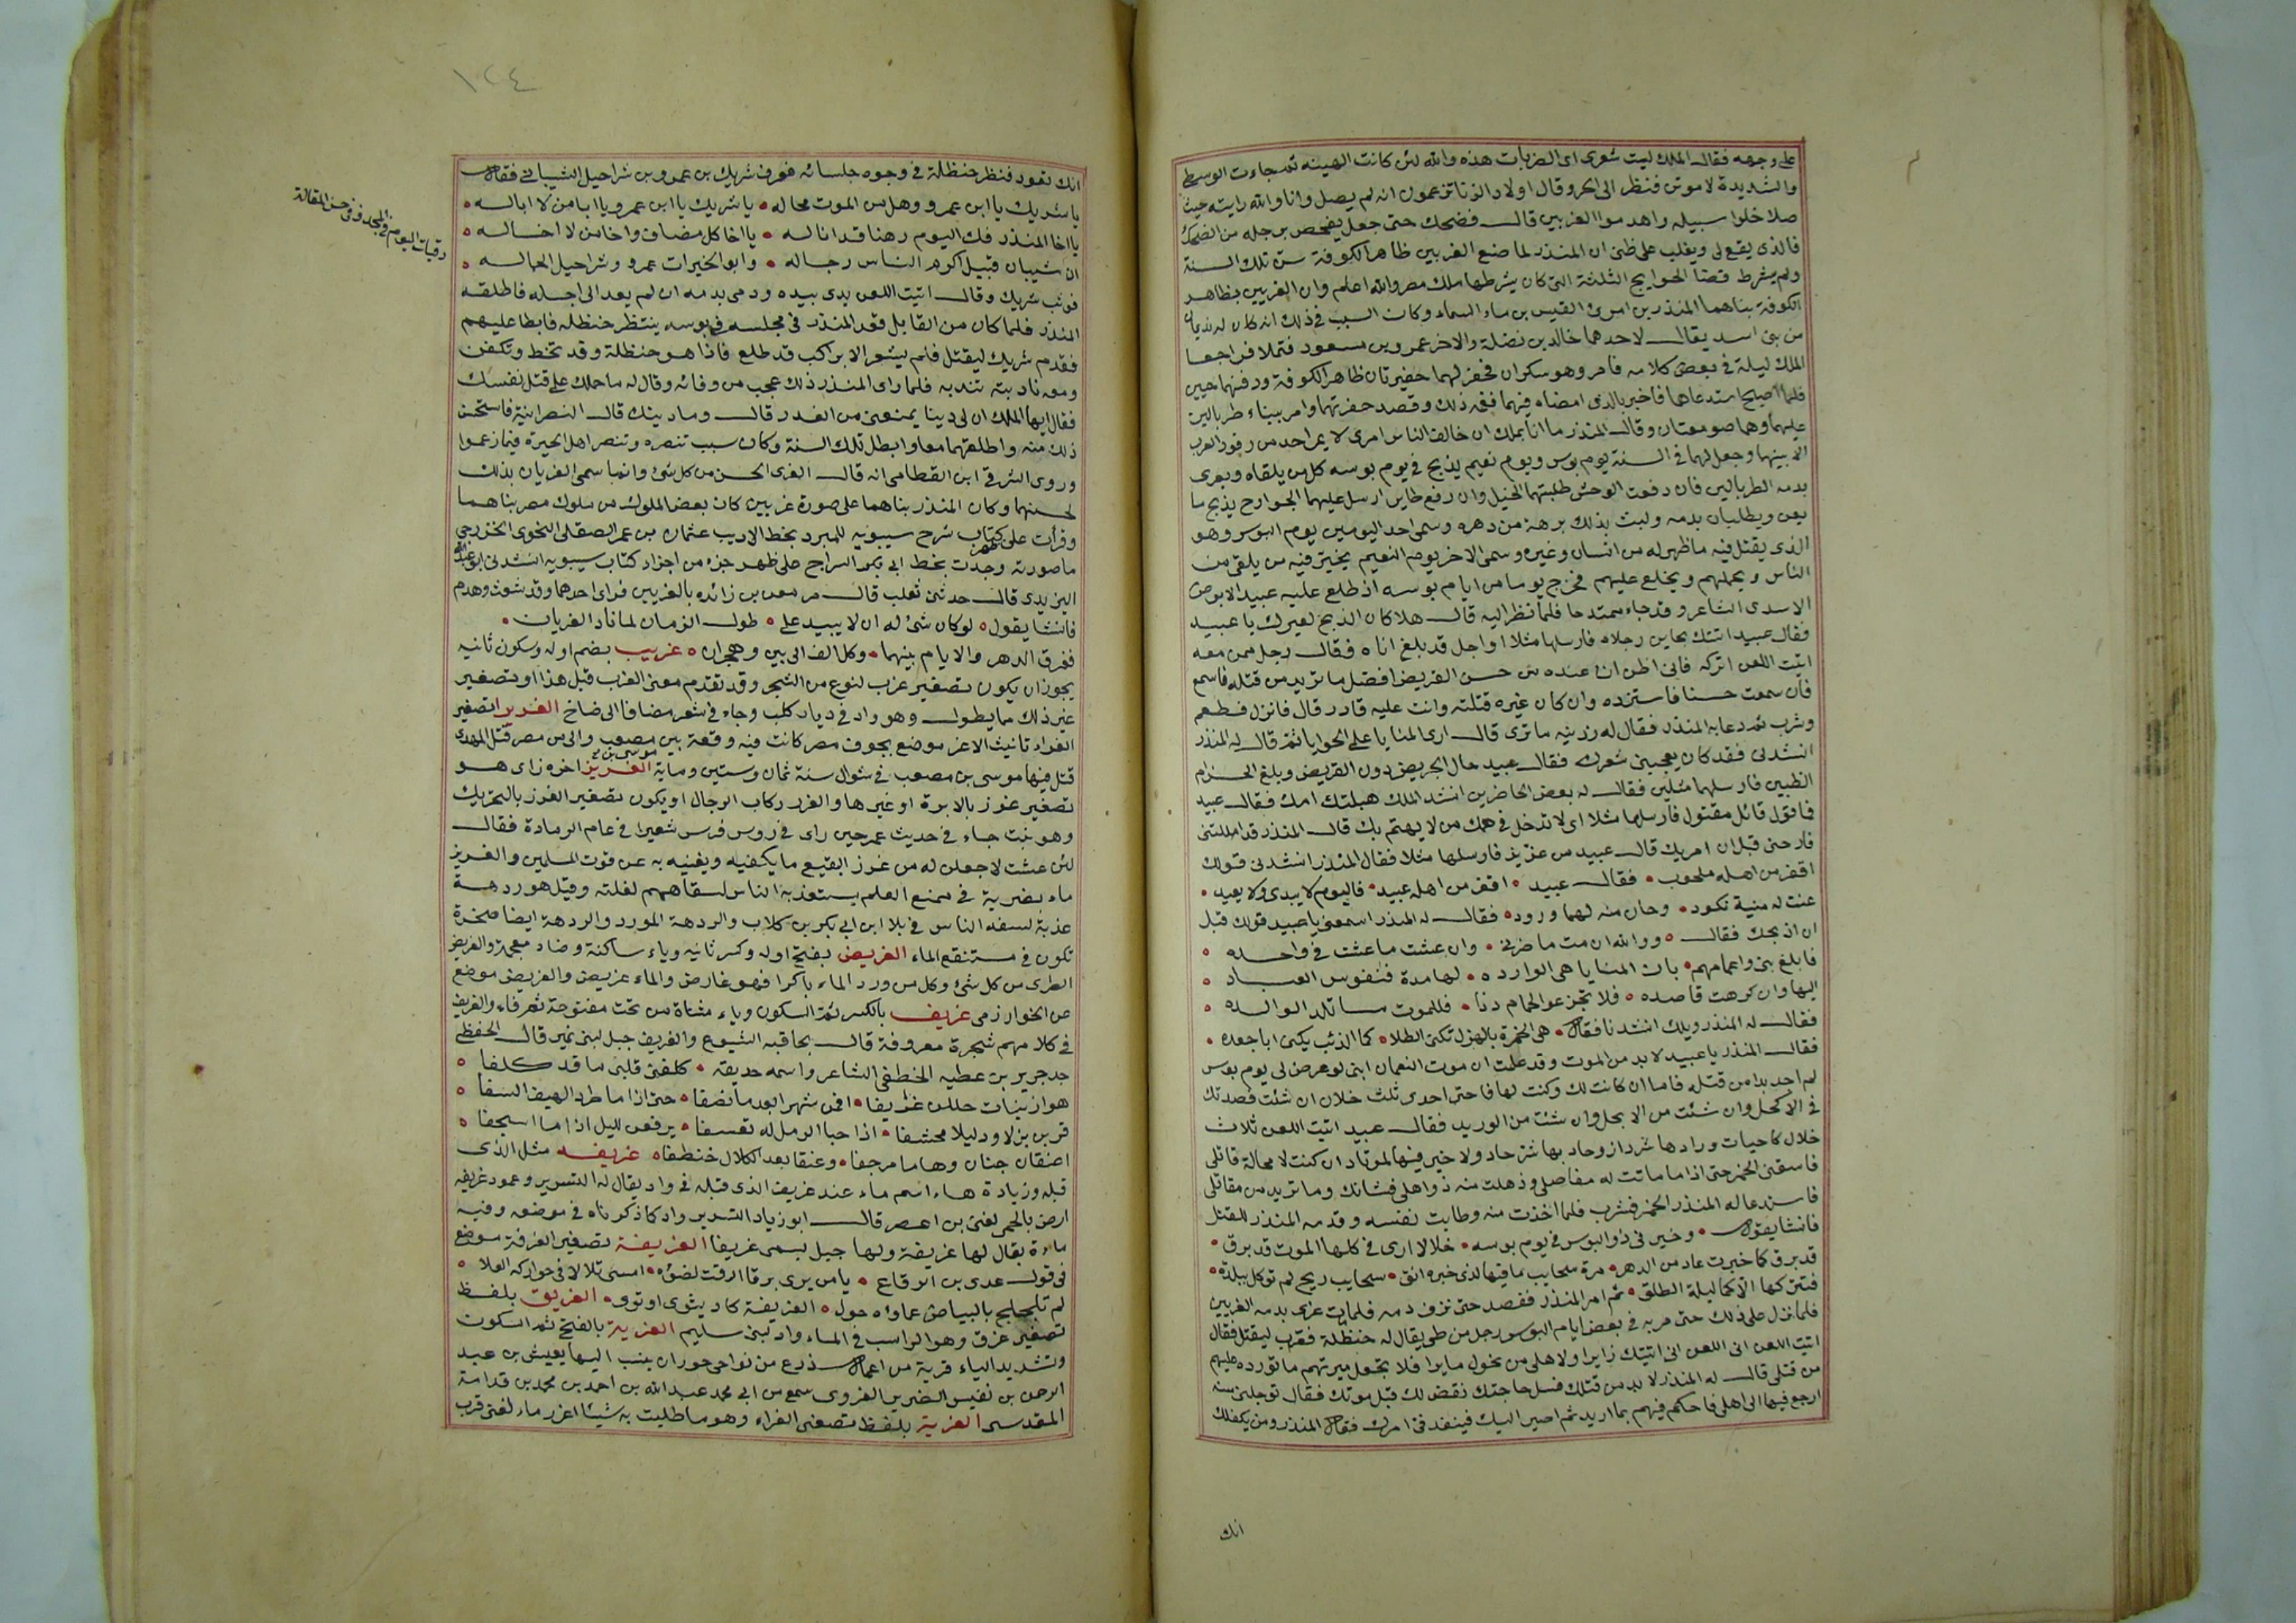 على وجهه فقال الملك ليت شعرى اى الضربات هذه والله لئن كانت الهينه ثم جاءت الوسطى
والشديدة لاموتن فنظر الى اكر وقال اولاد الزنا تزعمون انه لم يصل وانا والله رايته حيث
صلا خلوا سبيله واهدموا الغربين قال فضحك حتى جعل يفحص برجله من الضحك
فالذى يقع لى ويغلب على ظنى ان المنذر لما صنع الغربين ظاهر الكوفة سن تلك السنة
ولم يشرط قضا الحوايج الثلثة التى كان يشرطها ملك مصر والله اعلم وان الغريين بظاهر
الكوفة بناهما المنذر بن امرئ القيس بن ماء السماء وكان السبب فى ذلك انه كان له نديمان
من بنى اسد يقال لاحدهما خالد بن نضلة والاخر عمرو بن مسعود فثملا فراجعا
الملك ليلة فى بعض كلامه فامر وهو سكران فحفر لهما حفيرتان ظاهر الكوفة ودفنهما حيين
فلما اصبح استدعاهما فاخبر بالذى امضاه فيهما فغمه ذلك وقصد حفرتهما وامر ببناء طربالين
عليهما وهما صومعتان وقال المنذر ما انا بملك ان خالف الناس امرى لا يمر احد من وفود العرب
الا بينهما وجعل لهما فى السنة يوم بوس ويوم نعيم يذبح فى يوم بوسه كل من يلقاه ويغرى
بدمه الطربالين فان رفعت الوحش طلبتها الخيل وان رفع طاير ارسل عليها الجوارح يذبح ما
يعن ويطليان بدمه ولبث بذلك برهة من دهره وسمى احد اليومين يوم البوس وهو
الذى يقتل فيه ما ظهر له من انسان وغيره وسمى الاخر يوم النعيم يخير فيه من يلقى من
الناس ويحملهم ويخلع عليهم فخرج يوما من ايام بوسه اذ طلع عليه عبيد الابرص
الاسدى الشاعر وقد جاء ممتدحا فلما نظر اليه قال هلا كان الذبح لغيرك يا عبيد
فقال عبيد اتتك بحاين رجلاه فارسلها مثلا او اجل قد بلغ اناه فقال رجل ممن معه
ابيت اللعن اتركه فانى اظن ان عنده من حسن القريض افضل ما تريد من قتله فاسمع
فان سمعت حسنا فاستزده وان كان غيره قتلته وانت عليه قادر قال فانزل فطعم
وشرب ثم دعا به المنذر فقال له زدنيه ما ترى قال ارى المنايا على الحوايا ثم قال له المنذر
انشدنى فقد كان يعجبنى شعرك فقال عبيد حال الجريض دون القريض وبلغ الحزام
الطبيين فارسلهما مثلين فقال له بعض الحاضرين انشد الملك هبلتك امك فقال عبيد
فما قول قائل مقتول فارسلها مثلا اى لا تدخل فى همك من لا يهتم بك قال المنذر قد امللتنى
فارحنى قبل ان امر بك قال عبيد من عز بز فارسلها مثلا فقال المنذر انشدنى قولك
اقفر من اهله ملحوب • فقال عبيد • اقفر من اهله عبيد • فاليوم لا يبدى ولا يعيد •
عنت له منية نكود • وحان منه لها ورود • فقال له المنذر اسمعنى يا عبيد قولك قبل
ان اذبحك فقال • ووالله ان مت ما ضرنى • وان عشت ما عشت فى واحده •
فابلغ بنى واعمامهم • بان المنايا هى الوارده • لها مدة فنفوس العباد •
اليها وان كرهت قاصده • فلا تجزعوا لحمام دنا • فللموت ما تلد الوالده •
فقال له المنذر ويلك انشدنا فقال • هى الخمرة بالهزل تكنى الطلا • كما الذئب يكنى اباجعده •
فقال المنذر يا عبيد لا بد من الموت وقد علمت ان موت النعمان ابنى لو عرض لى يوم بوس
لم اجد بدا من قتله فاما ان كانت لك وكنت لها فاختر احدى ثلث خلال ان شئت فصدتك
فى الاكحل وان شئت من الابجل وان شئت من الوريد فقال عبيد ابيت اللعن ثلاث
خلال كاحيات ورادها شر دار وحاديها شر حاد ولا خير فيها لمرتاد ان كنت لا محالة قاتلى
فاسقنى الخمر حتى اذا ماتت له مفاصلى وذهلت منه ذواهلى فشانك وما تريد من مقاتلى
فاستدعا له المنذر الخمر فشرب فلما اخذت منه وطابت نفسه وقدمه المنذر للقتل
فانشا يقول • وخيرنى ذو البوس فى يوم بوسه • خلالا ارى فى كلها الموت قد برق •
كما خيرت عاد من الدهر مرة سحايب ما فيها لذى خيره انق • سحايب ريح لم توكل ببلدة •
فتتركها الا كما ليلة الطلق • ثم امر المنذر ففصد حتى نزف دمه فلما مات غرى بدمه الغريين
فلما نزل على ذلك حتى مر به فى بعض ايام البوس رجل من طى يقال له حنظلة فقرب ليقتل فقال
ابيت اللعن انى اتيتك زايرا ولاهلى من بحرك مايرا فلا تجعل ميرتهم ما تورده عليهم
من قتلى قال له المنذر لا بد من قتلك فسل حاجتك نقض لك قبل موتك فقال تؤجلنى سنه
ارجع فيها الى اهلى فاحكم فيهم بما اريد ثم اصير اليك فينفذ فى امرك فقال المنذر ومن يكفلك
انك
١٢٤
انك تعود فنظر حنظلة فى وجوه جلسائه فعرف شريك بن عمرو بن شراحيل الشيبانى فقال
يا شريك يا ابن عمرو وهل من الموت محاله • يا شريك يا ابن عمرو يا ابا من لا ابا له •
يا اخا المنذر فك اليوم رهنا قد انا له • يا اخا كل مضاف واخا من لا اخا له •
ان شيبان قبيل اكرم الناس رجاله • وابو الخيرات عمرو وشراحيل الحماله •
رقباك اليوم فى المجد وفى حسن المقالة
فوثب شريك وقال ابيت اللعن يدى بيده ودمى بدمه ان لم يعد الى اجله فاطلقه
المنذر فلما كان من القابل قعد المنذر فى مجلسه فى بوسه ينتظر حنظله فابطا عليهم
فقدم شريك ليقتل فلم يشعر الا براكب قد طلع فاذا هو حنظلة وقد تحنط وتكفن
ومعه نادبته تندبه فلما راى المنذر ذلك عجب من وفائه وقال له ما حملك على قتل نفسك
فقال ايها الملك ان لى دينا يمنعنى من الغدر قال وما دينك قال النصرانية فاستحسن
ذلك منه واطلقهما معا وابطل تلك السنة وكان سبب تنصره وتنصر اهل الحيرة فيما زعموا
وروى الشرقى ابن القطامى انه قال الغرى الحسن من كل شئ وانما سمى الغريان بذلك
لحسنهما وكان المنذر بناهما على صورة غريين كان بعض الملوك من ملوك مصر بناهما
وقرأت على ظهر كتاب شرح سيبويه للمبرد بخط الاديب عثمان بن عمر الصقلى النحوى الخزرجى
ما صورته وجدت بخط ابى بكر السراج على ظهر جزء من اجزاء كتاب سيبويه انشدنى ابو عبد الله
اليزيدى قال حدثنى ثعلب قال مر معن بن زائده بالغريين فراى احدهما وقد شعث وهدم
فانشا يقول • لو كان شئ له ان لا يبيد على • طول الزمان لما باد الغريان •
ففرق الدهر والايام بينهما • وكل الف الى بين وهجران • غريب بضم اوله وسكون ثانيه
يجوز ان يكون تصغير غرب لنوع من الشجر وقد تقدم معنى الغرب قبل هذا او تصغير
غير ذلك مما يطول وهو واد فى ديار كلب وجاء فى شعر مضافا الى ضاخ الغريرا تصغير
الغراء تانيث الاغر موضع بجوف مصر كانت فيه وقعة بين موسى بن مصعب والى من مصر قبل المهدى
قتل فيها موسى بن مصعب فى شوال سنة ثمان وستين وماية الغريز اخره زاى هو
تصغير غرز بالابرة او غيرها والغرز ركاب الرحال او يكون تصغير الغرز بالتحريك
وهو نبت جاء فى حديث عمر حين راى فى روس فرس شعيرا فى عام الرمادة فقال
لئن عشت لاجعلن له من غرز البقيع ما يكفيه ويغنيه به عن قوت المسلمين والغريز
ماء بضرية فى ممنع العلم يستعذبه الناس لشفاههم لقلته وقيل هو ردهة
عذبة لسقه الناس فى بلا ابن ابى بكر بن كلاب والردهة المورد والردهة ايضا صخرة
تكون فى مستنقع الماء الغريض بفتح اوله وكسر ثانيه وياء ساكنة وضاد معجمة والغريض
الطرى من كل شئ وكل من ورد الماء باكرا فهو غارض والماء غريض والغريض موضع
عن الخوارزمى غريف بالكسر ثم السكون وياء مثناة من تحت مفتوحة ثم فاء والغريف
فى كلامهم شجرة معروفة قال بحافيه الشوع والغريف جبل لبنى نمير قال الخطفى
جد جرير بن عطيه الخطفى الشاعر واسمه حذيفه • كلفنى قلبى ما قد كلفا •
هوازنيات حللن غريفا • اقمن شهرا بعد ما تصيفا • حتى اذا ما طرد الهيف السفا •
قربن بزلا ودليلا مخشفا • اذا حبا الرمل له تعسفا • يرفعن لليل اذا ما اسجفا •
اعناق جنان وهاما رجفا • وعنقا بعد الكلال خطفا • غريفه مثل الذى
قبله وزيادة هاء اسم ماء عند غريف الذى قبله فى واد يقال له التسرير وعمود غريفه
ارض بالحمى لغنى بن اعصر قال ابو زياد التسرير واد كما ذكرناه فى موضعه وفيه
ماءة يقال لها غريفة ولها جبل يسمى غريفا الغريفة تصغير الغرفة موضع
فى قول عدى بن الرقاع • يا من يرى برقا ارقت لضوئه • امسى تلالا فى حواركه العلا •
لم تلجلج بالبياض عماؤه حول • الغريفة كاد يثوى او ثوى • الغريق بلفظ
تصغير غرق وهو الراسب فى الماء واد لبنى سليم الغرية بالفتح ثم السكون
وتشديد الياء قرية من اعمال زرع من نواحى حوران ينسب اليها يعيش بن عبد
الرحمن بن نفيس الضرير الغروى سمع من ابى محمد عبد الله بن احمد بن محمد بن قدامة
المقدسى الغرية بلفظ تصغير الغراء وهو ما طليت به شيئا اغزر ماء لغنى قرب